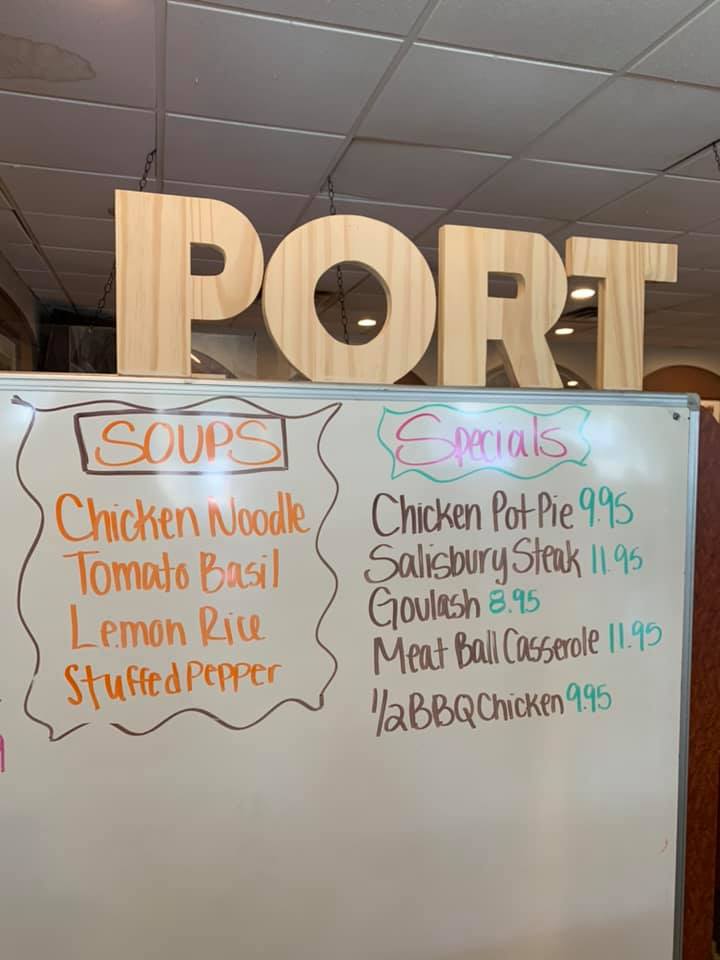 PORT
SOUPS
Chicken Noodle
Tomato Basil
Lemon Rice
Stuffed Pepper
Specials
Chicken Pot Pie 9.95
Salisbury Steak 11.95
Goulash 8.95
Meat Ball Casserole 11.95
1/2 BBQ Chicken 9.95